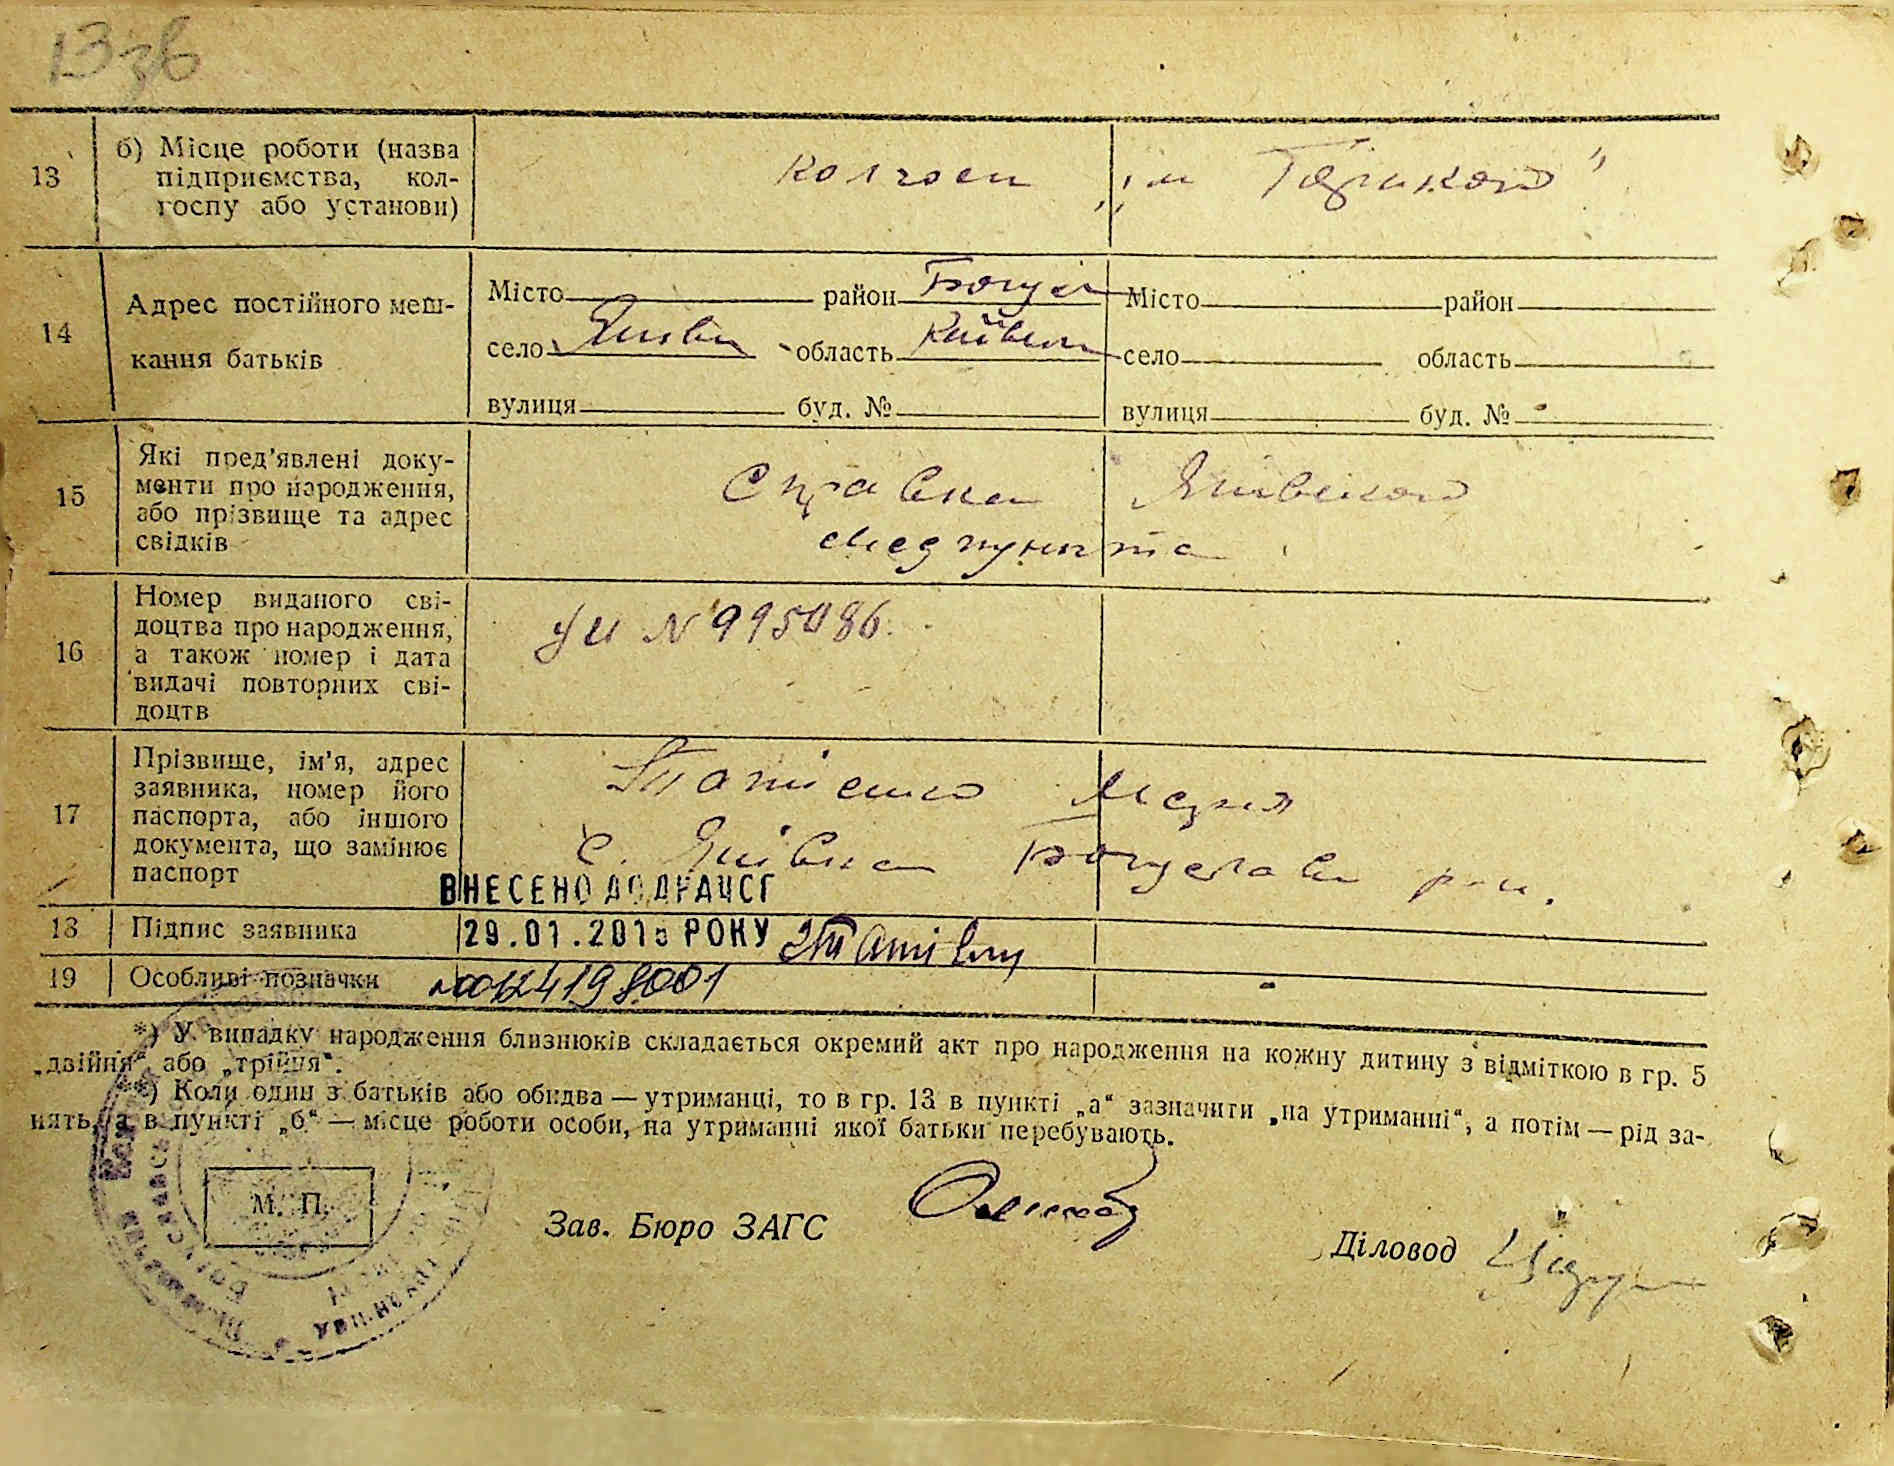 13зв
13 б) Місце роботи (назва
підприємства, кол-
госпу або установи)
колгосп „ім Горького"
14 Адрес постійного меш-
кання батьків
Місто район Богусл Місто район
село область Київськ село область
вулиця буд. № вулиця буд. №
15 Які пред'явлені доку-
менти про народження,
або прізвище та адрес
свідків
Справка
медпункта
16 Номер виданого сві-
доцтва про народження,
а також номер і дата
видачі повторних сві-
доцтв
N 995086
17 Прізвище, ім'я, адрес
заявника, номер його
паспорта, або іншого
документа, що замінює
паспорт
Марія
с. Богуславськ р-н.
ВНЕСЕНО ДО ДРАЦСГ
18 Підпис заявника 29.01.2015 РОКУ
19 Особливі позначки 00124198001
*) У випадку народження близнюків складається окремий акт про народження на кожну дитину з відміткою в гр. 5
„двійня", або „трійня".
**) Коли один з батьків або обидва — утриманці, то в гр. 13 в пункті „а" зазначити „на утриманні", а потім — рід за-
нять, а в пункті „б" — місце роботи особи, на утриманні якої батьки перебувають.
М. П.
Зав. Бюро ЗАГС
Діловод